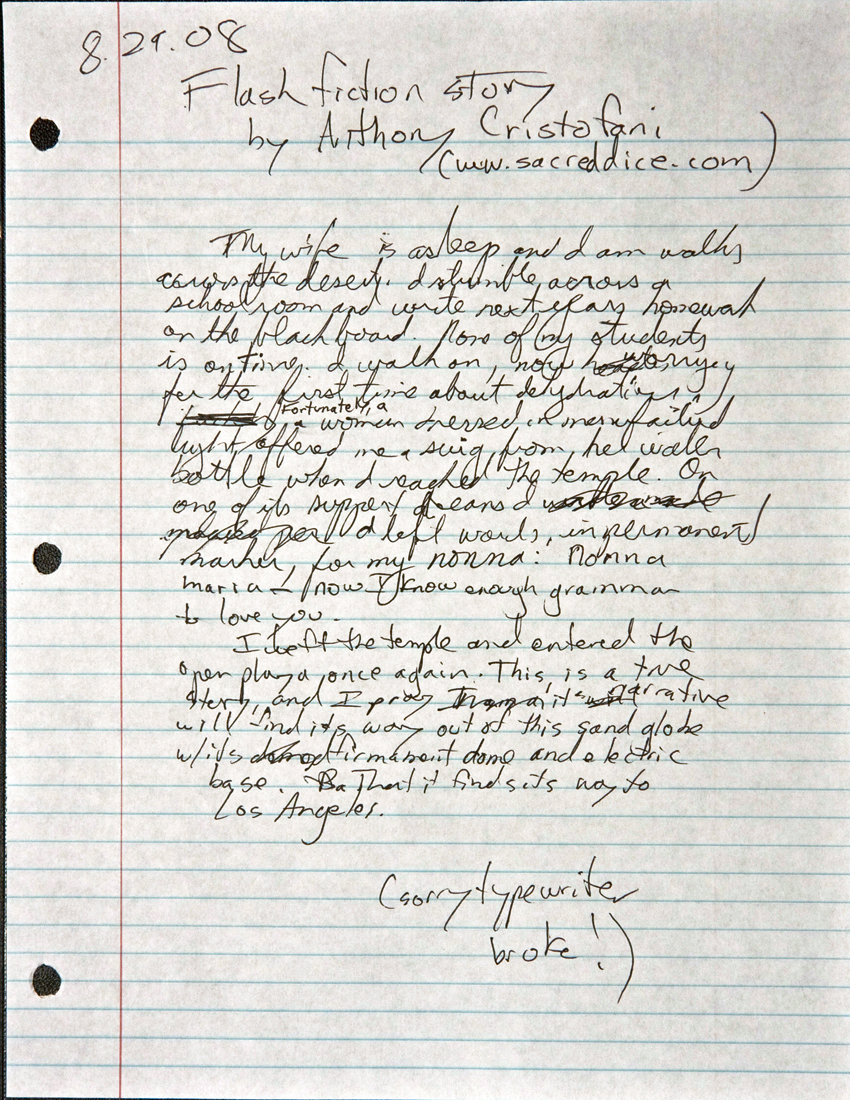 8.29.08
Flash fiction story
by Anthony Cristofani
(www.sacreddice.com)
My wife is asleep and I am walking
across the desert. I stumble across a
schoolroom and write next year's homework
on the blackboard. None of my students
is on time. I walk on, now worrying
for the first time about dehydration.
Fortunately, a
a woman dressed in manufactured
light offered me a swig from her water
bottle when I reached the temple. On
one of its support beams I
I left words, in permanent
marker, for my nonna: Nonna
maria - now I know enough grammar
to love you.
I left the temple and entered the
open playa once again. This is a true
story, and I pray it's narrative
will find its way out of this sand globe
w/its firmament dome and electric
base. That it finds its way to
Los Angeles.
(sorry typewriter
broke!)